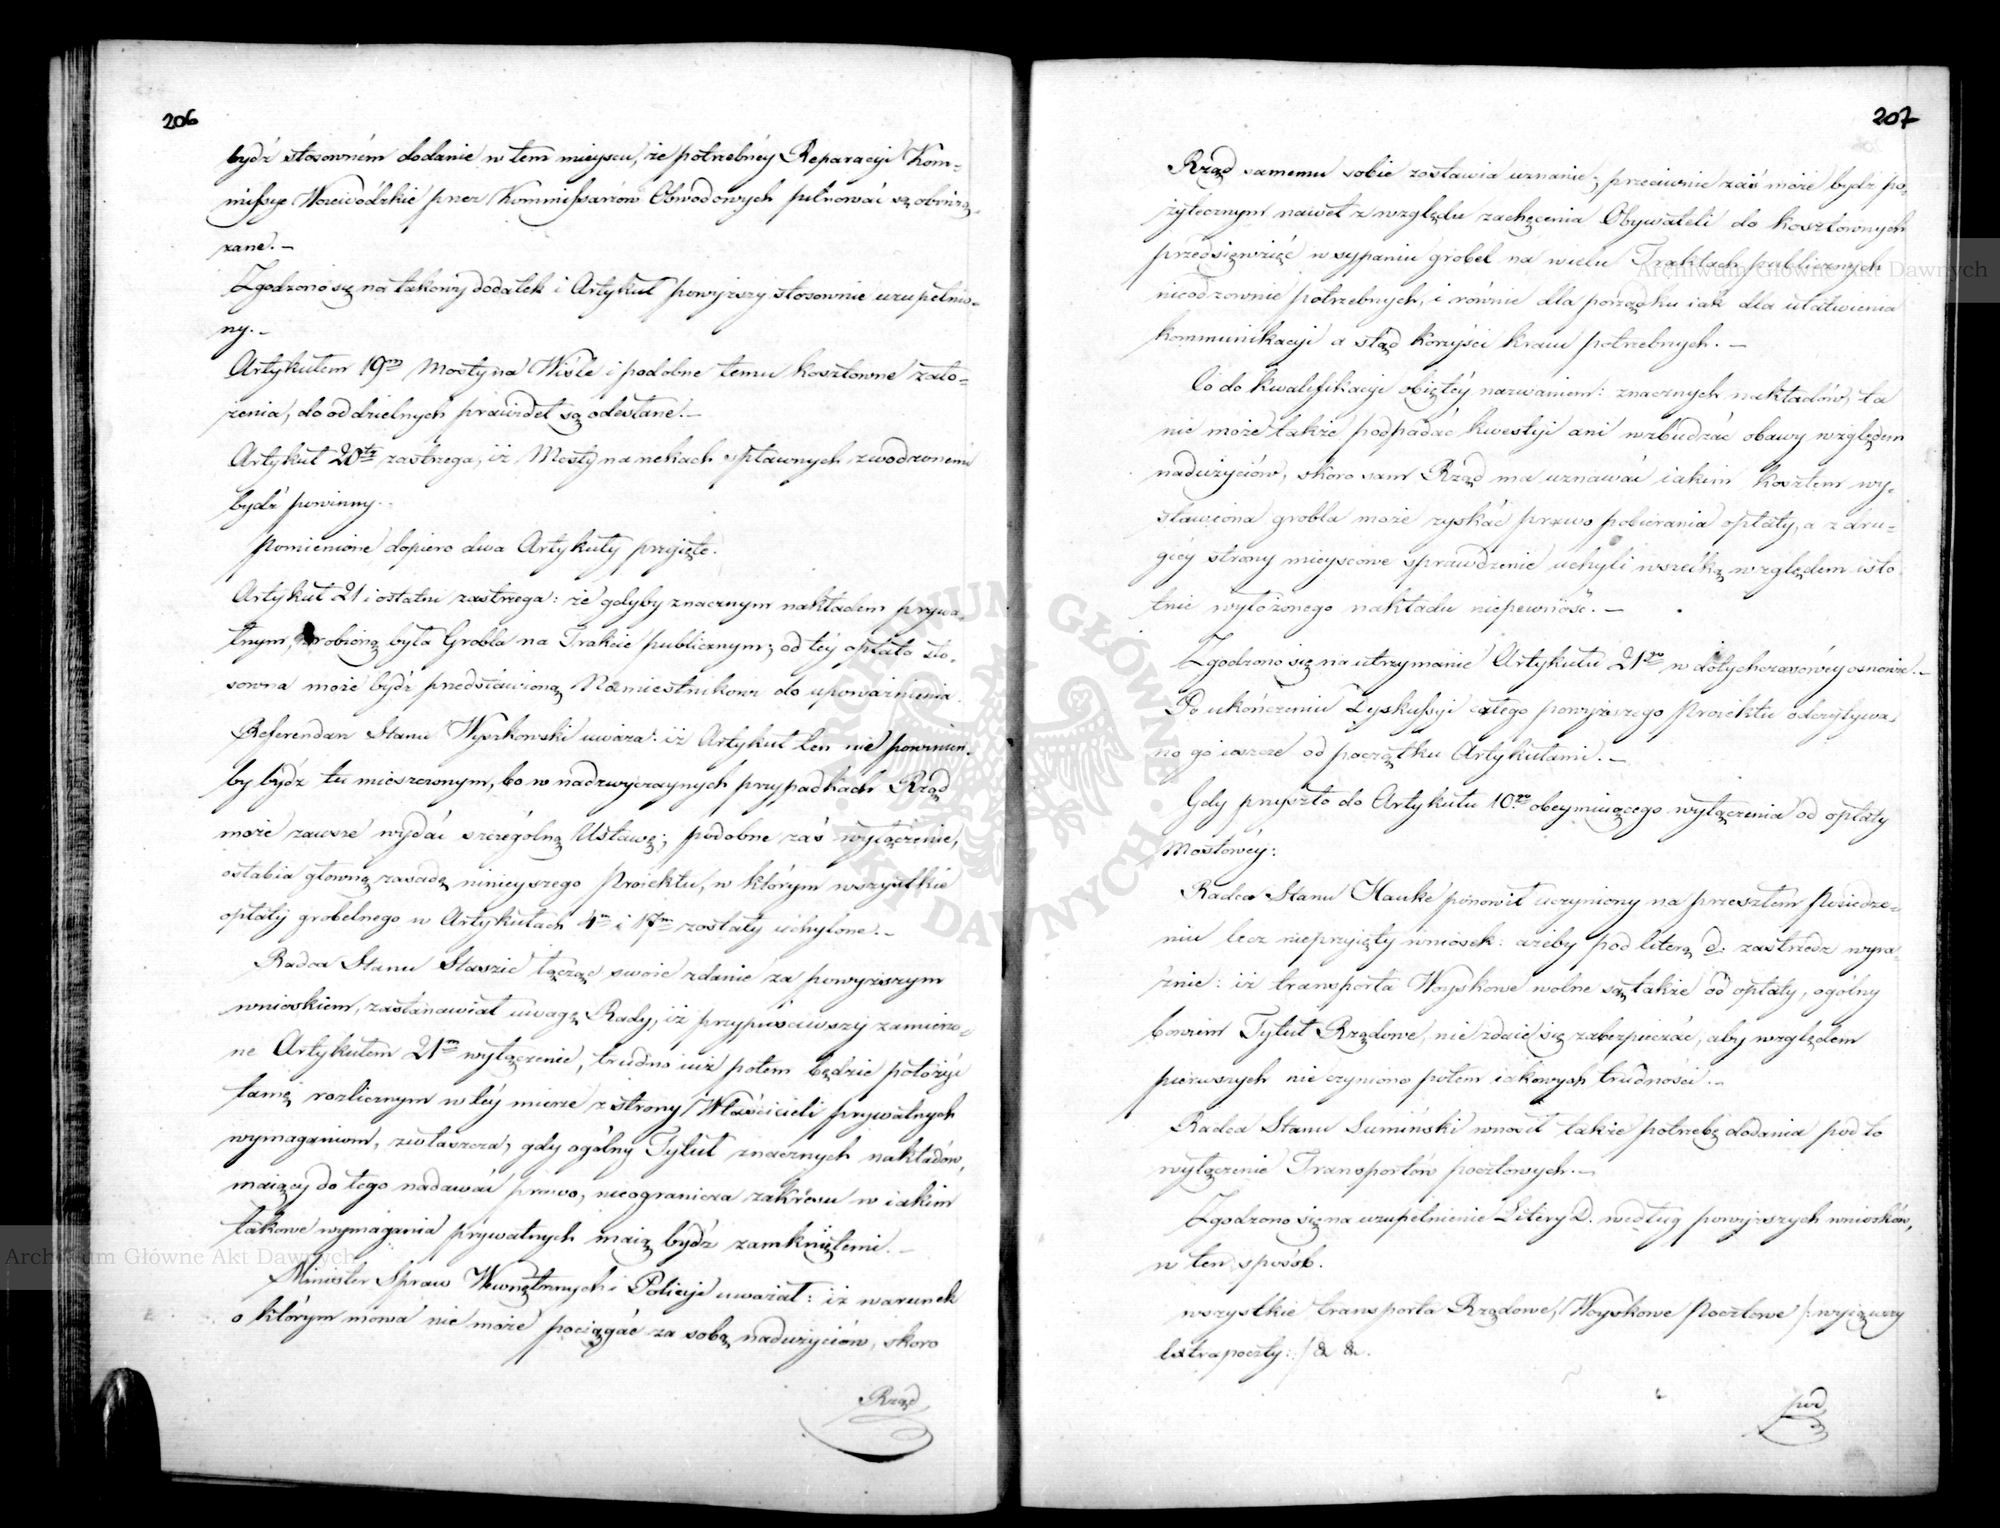 206
bydź stosowném dodanie w tem mieyscu, że potrzebnéy Reparacyi Kom-
missye Woiewódzkie przez Kommissarzów Obwodowych pilnować są obowią-
zane. –
Zgodzono się na takowy dodatek i Artykuł powyższy stosownie uzupełnio-
ny. –
Artykułem 19m Mosty na Wiśle i podobne temu kosztowne zało-
żenia, do oddzielnych prawideł są odesłane. –
Artykuł 20ty zastrzega, iż Mosty na rzekach spławnych zwodzonemi
bydź powinny. –
Pomienione dopiero dwa Artykuły przyięte.
Artykuł 21 i ostatni zastrzega: że gdyby znacznym nakładem prywa-
tnym, zrobioną była Grobla na Trakcie publicznym; od téy opłata sto-
sowna może bydź przedstawioną Namiestnikowi do upoważnienia.
Referendarz Stanu Wyszkowski uważa: iż Artykuł ten nie powinien-
by bydź tu mieszczonym, bo w nadzwyczaynych przypadkach Rząd
może zawsze wydać szczególną Ustawę; podobne zaś wyłączenie,
osłabia główną zasadę ninieyszego Proiektu, w którym wszystkie
opłaty grobelnego w Artykułach 4m i 17m zostały uchylone. –
Radca Stanu Staszic łącząc swoie zdanie za powyższym
wnioskiem, zastanawiał uwagę Rady, iż przypuściwszy zamierzo-
ne Artykułem 21m wyłączenie, trudno iuż potem będzie położyć
tamę rozlicznym w téy mierze z strony Właścicieli prywatnych
wymaganiom, zwłaszcza, gdy ogólny Tytuł znacznych nakładów,
maiący do tego nadawać prawo, nieogranicza zakresu w iakim
takowe wymagania prywatnych maią bydź zamkniętemi. –
Minister Spraw Wewnętrznych i Policyi uważał: iż warunek
o którym mowa nie może pociągać za sobą nadużyciów, skoro
Rząd
207
Rząd samemu sobie zostawia uznanie; przeciwnie zaś może bydź po-
żytecznym nawet z względu zachęcenia Obywateli do kosztownych
przedsięwzięć w sypaniu grobel na wielu Traktach publicznych
nieodzownie potrzebnych, i równie dla porządku iak dla ułatwienia
kommunikacyi a stąd korzyści kraiu potrzebnych. –
Co do kwalifikacyi obiętéy nazwaniem: znacznych nakładów, ta
nie może także podpadać kwestyi ani wzbudzać obawy względem
nadużyciów, skoro sam Rząd ma uznawać iakim kosztem wy-
stawiona grobla może zyskać prawo pobierania opłaty, a z dru-
giéy strony mieyscowe sprawdzenie uchyli wszelką względem isto-
tnie wyłożonego nakładu niepewność. –
Zgodzono się na utrzymanie Artykułu 21go w dotychczasowéy osnowie. –
Po ukończeniu Dyskussyi całego powyższego Proiektu odczytywa-
no go ieszcze od początku Artykułami. –
Gdy przyszło do Artykułu 10go obeymuiącego wyłączenia od opłaty
Mostowéy:
Radca Stanu Hauke ponowił uczyniony na przeszłem Posiedze-
niu lecz nieprzyięty wniosek: ażeby pod literą d: zastrzedz wyra-
źnie: iż transporta Woyskowe wolne są także od opłaty, ogólny
bowiem Tytuł Rządowe, nie zdaie się zabezpieczać, aby względem
pierwszych nie czyniono potem iakowych trudności. –
Radca Stanu Sumiński wnosił także potrzebę dodania pod to
wyłączenie Transportów pocztowych. –
Zgodzono się na uzupełnienie Litery D. według powyższych wniosków,
w ten sposób.
wszystkie transporta Rządowe, Woyskowe Pocztowe /:wyiąwszy
Extrapoczty:/ & &.
pod
ARCHIWUM GŁÓWNE AKT DAWNYCH
Archiwum Główne Akt Dawnych
Archiwum Główne Akt Dawnych